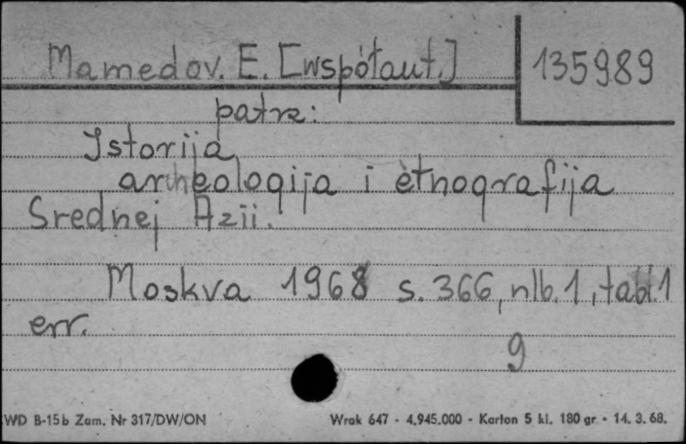 Mamedov. E. [współaut.] 135989
patrz:
Istorija,
archeologija i ètnografija
Srednej Azii.
Moskva 1968 s. 366, nlb. 1, tabl. 1
err.
9
WD B-15b Zam. Nr 317/DW/ON Wrak 647 - 4.945.000 - Karton 5 kl. 180 gr - 14. 3. 68.